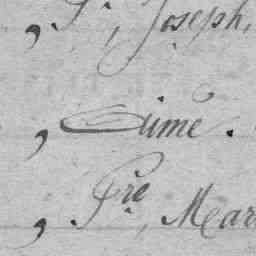 , S.r, Joseph,
, Aimé.
, P.re, Mar